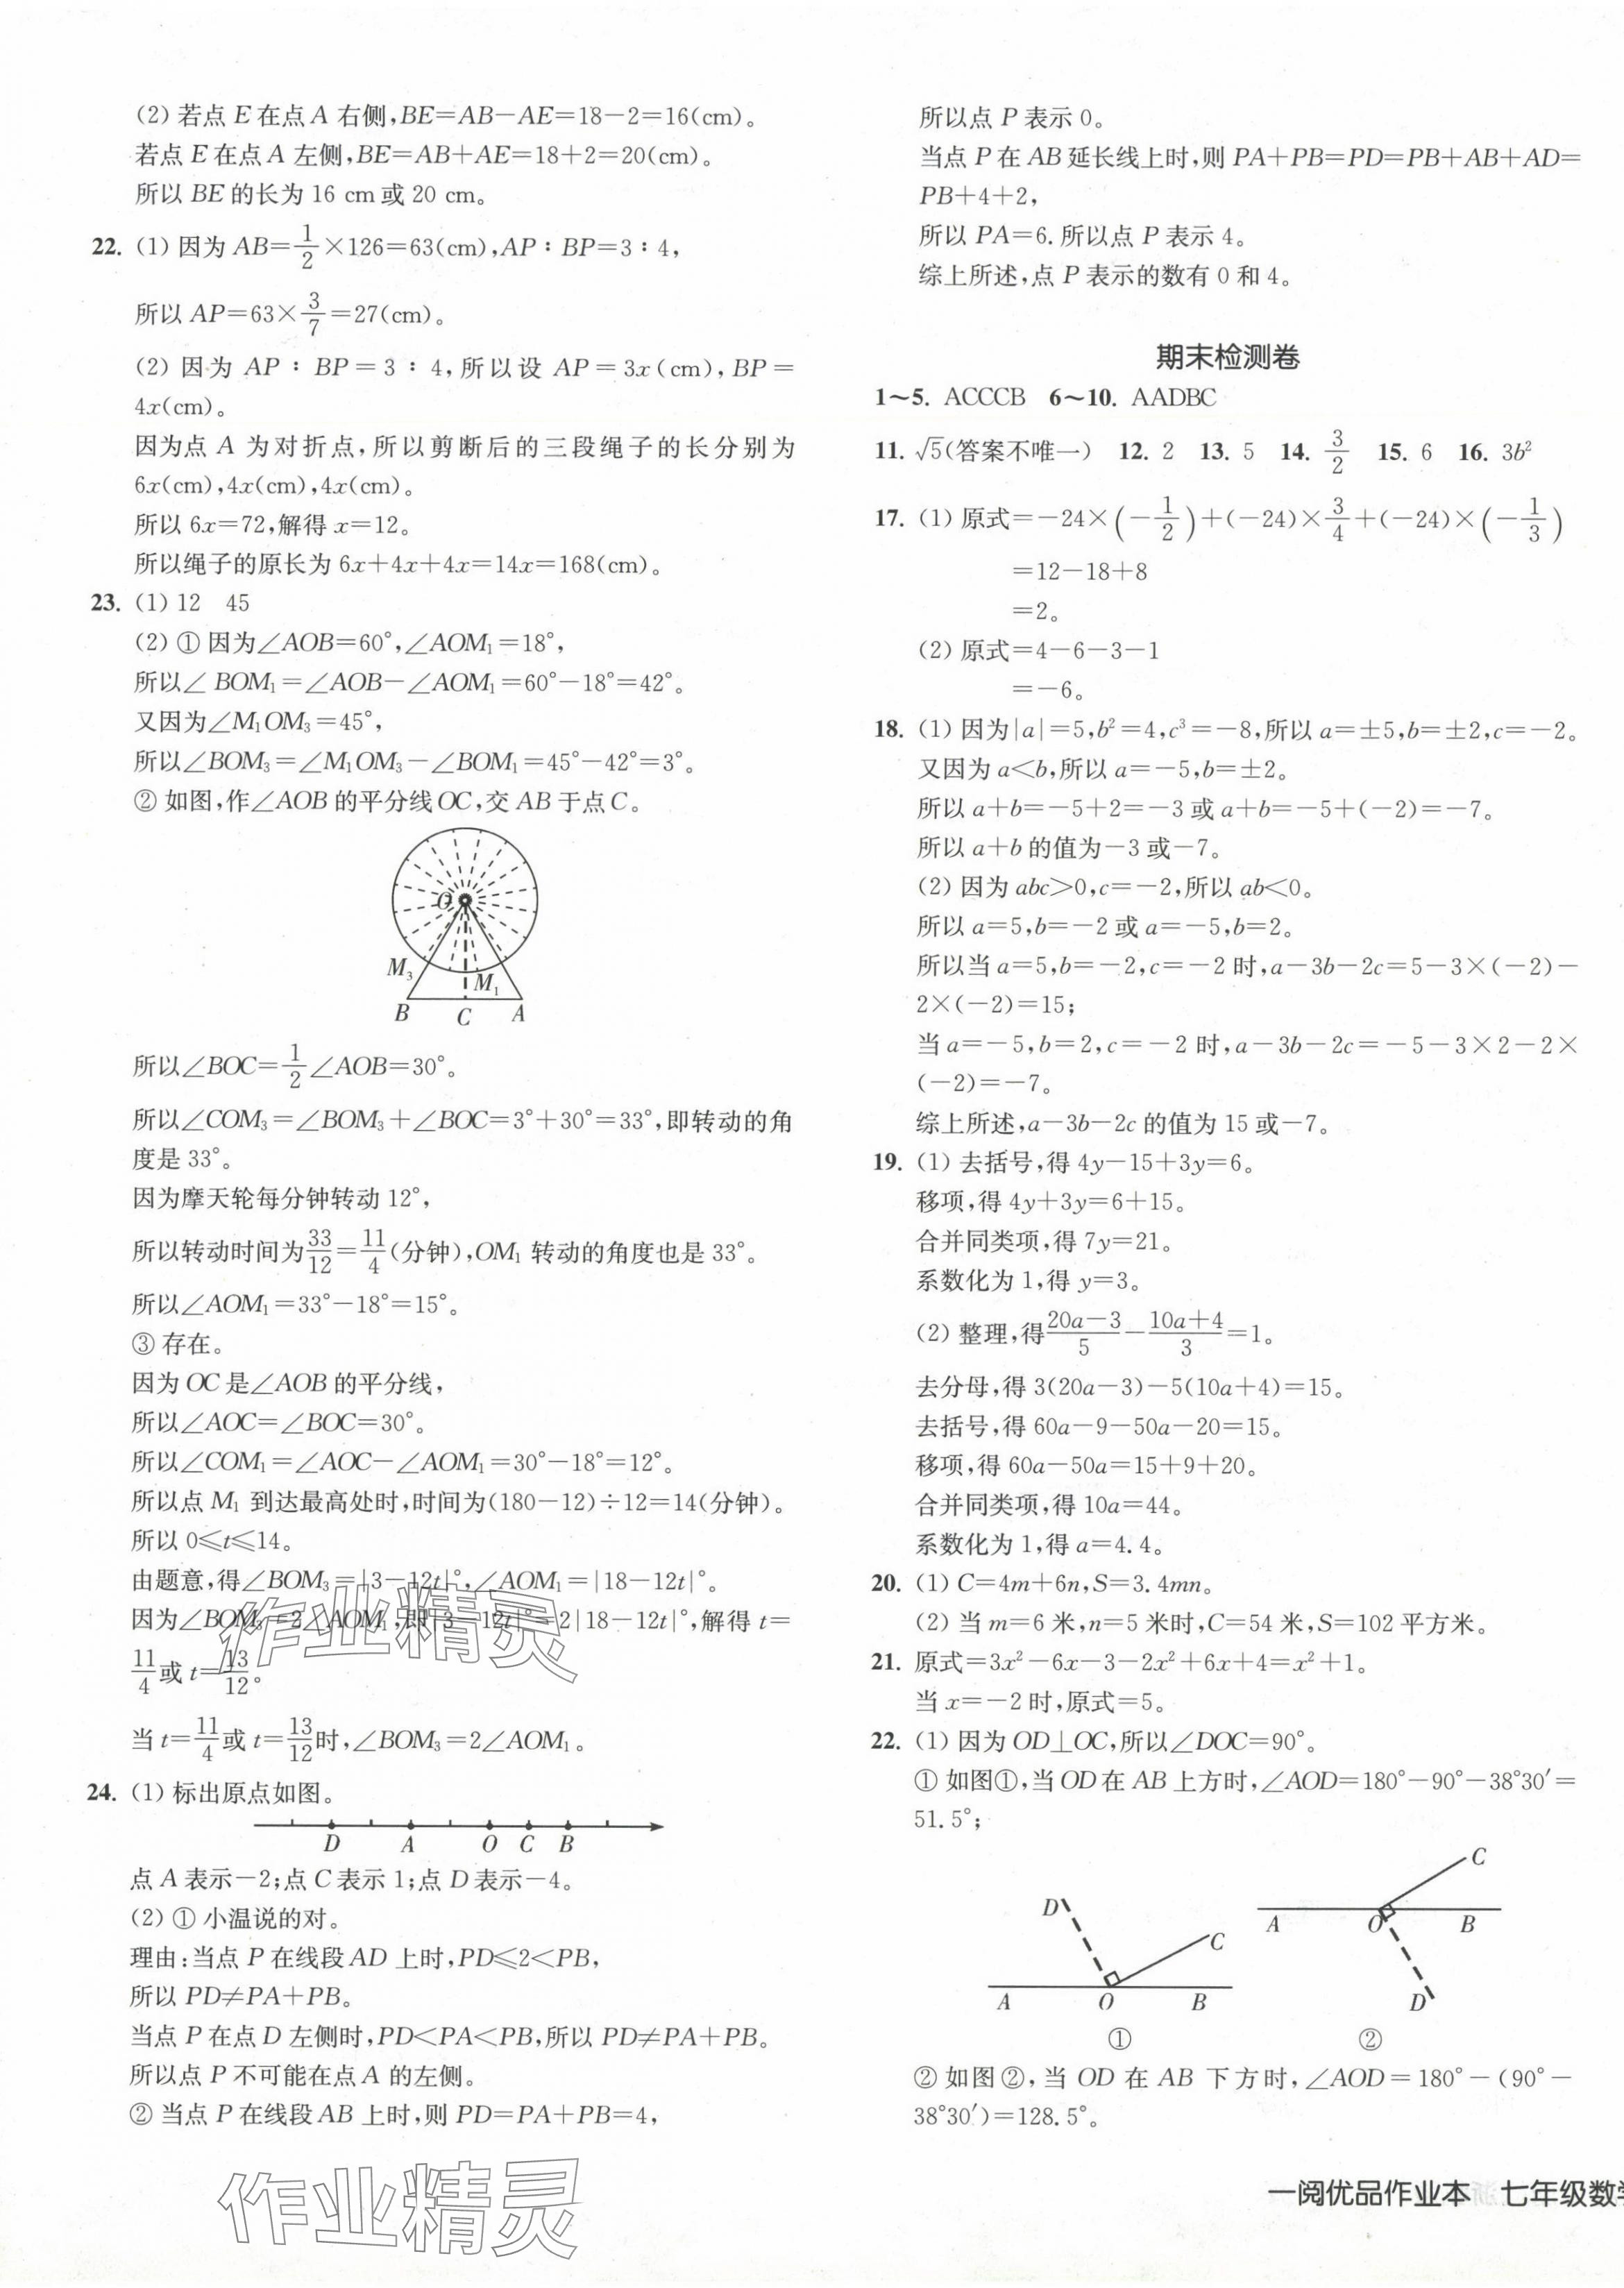 (2) 若点 E 在点 A 右侧,BE=AB-AE=18-2=16(cm)。
若点 E 在点 A 左侧,BE=AB+AE=18+2=20(cm)。
所以 BE 的长为 16 cm 或 20 cm。
22. (1) 因为 AB=1/2×126=63(cm),AP∶BP=3∶4,
所以 AP=63×3/7=27(cm)。
(2) 因为 AP∶BP=3∶4,所以设 AP=3x(cm),BP=
4x(cm)。
因为点 A 为对折点,所以剪断后的三段绳子的长分别为
6x(cm),4x(cm),4x(cm)。
所以 6x=72,解得 x=12。
所以绳子的原长为 6x+4x+4x=14x=168(cm)。
23. (1) 12 45
(2) ① 因为∠AOB=60°,∠AOM₁=18°,
所以∠BOM₁=∠AOB-∠AOM₁=60°-18°=42°。
又因为∠M₁OM₃=45°,
所以∠BOM₃=∠M₁OM₃-∠BOM₁=45°-42°=3°。
② 如图,作∠AOB 的平分线 OC,交 AB 于点 C。
O
M₃
M₁
B C A
所以∠BOC=1/2∠AOB=30°。
所以∠COM₃=∠BOM₃+∠BOC=3°+30°=33°,即转动的角
度是 33°。
因为摩天轮每分钟转动 12°,
所以转动时间为33/12=11/4(分钟),OM₁ 转动的角度也是 33°。
所以∠AOM₁=33°-18°=15°。
③ 存在。
因为 OC 是∠AOB 的平分线,
所以∠AOC=∠BOC=30°。
所以∠COM₁=∠AOC-∠AOM₁=30°-18°=12°。
所以点 M₁ 到达最高处时,时间为(180-12)÷12=14(分钟)。
所以 0≤t≤14。
由题意,得∠BOM₃=|3-12t|°,∠AOM₁=|18-12t|°。
因为∠BOM₃=2∠AOM₁,即|3-12t|°=2|18-12t|°,解得 t=
11/4或 t=13/12。
当 t=11/4或 t=13/12时,∠BOM₃=2∠AOM₁。
24. (1) 标出原点如图。
D A O C B
点 A 表示-2;点 C 表示 1;点 D 表示-4。
(2) ① 小温说的对。
理由:当点 P 在线段 AD 上时,PD≤2<PB,
所以 PD≠PA+PB。
当点 P 在点 D 左侧时,PD<PA<PB,所以 PD≠PA+PB。
所以点 P 不可能在点 A 的左侧。
② 当点 P 在线段 AB 上时,则 PD=PA+PB=4,
作业精灵
作业精灵
所以点 P 表示 0。
当点 P 在 AB 延长线上时,则 PA+PB=PD=PB+AB+AD=
PB+4+2,
所以 PA=6.所以点 P 表示 4。
综上所述,点 P 表示的数有 0 和 4。
期末检测卷
1~5. ACCCB 6~10. AADBC
11. √5(答案不唯一) 12. 2 13. 5 14. 3/2 15. 6 16. 3b²
17. (1) 原式=-24×(-1/2)+(-24)×3/4+(-24)×(-1/3)
=12-18+8
=2。
(2) 原式=4-6-3-1
=-6。
18. (1) 因为|a|=5,b²=4,c³=-8,所以 a=±5,b=±2,c=-2。
又因为 a<b,所以 a=-5,b=±2。
所以 a+b=-5+2=-3 或 a+b=-5+(-2)=-7。
所以 a+b 的值为-3 或-7。
(2) 因为 abc>0,c=-2,所以 ab<0。
所以 a=5,b=-2 或 a=-5,b=2。
所以当 a=5,b=-2,c=-2 时,a-3b-2c=5-3×(-2)-
2×(-2)=15;
当 a=-5,b=2,c=-2 时,a-3b-2c=-5-3×2-2×
(-2)=-7。
综上所述,a-3b-2c 的值为 15 或-7。
19. (1) 去括号,得 4y-15+3y=6。
移项,得 4y+3y=6+15。
合并同类项,得 7y=21。
系数化为 1,得 y=3。
(2) 整理,得(20a-3)/5-(10a+4)/3=1。
去分母,得 3(20a-3)-5(10a+4)=15。
去括号,得 60a-9-50a-20=15。
移项,得 60a-50a=15+9+20。
合并同类项,得 10a=44。
系数化为 1,得 a=4.4。
20. (1) C=4m+6n,S=3.4mn。
(2) 当 m=6 米,n=5 米时,C=54 米,S=102 平方米。
21. 原式=3x²-6x-3-2x²+6x+4=x²+1。
当 x=-2 时,原式=5。
22. (1) 因为 OD⊥OC,所以∠DOC=90°。
① 如图①,当 OD 在 AB 上方时,∠AOD=180°-90°-38°30′=
51.5°;
D C A O B ①
C A O B D ②
② 如图②,当 OD 在 AB 下方时,∠AOD=180°-(90°-
38°30′)=128.5°。
一阅优品作业本 七年级数学